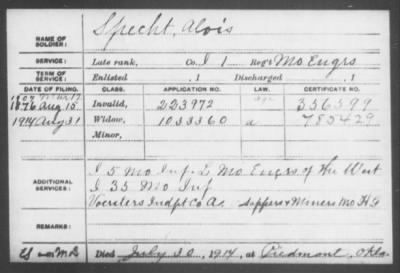 NAME OF SOLDIER: Specht, Alois
SERVICE: Late rank, Co. I 1 Reg't Mo Engrs
TERM OF SERVICE: Enlisted , 1 Discharged , 1
DATE OF FILING. CLASS. APPLICATION NO. LAW. CERTIFICATE NO.
1876 Aug 15 Invalid, 223972 356399
1914 Aug 31 Widow, 1033360 a 785429
Minor,
ADDITIONAL SERVICES: I 5 Mo Inf. 2 Mo Engrs of the West
I 35 Mo Inf
Voerders Indpt Co A. Sappers & Miners Mo H G
REMARKS:
Died July 30, 1914, at Piedmont, Okla